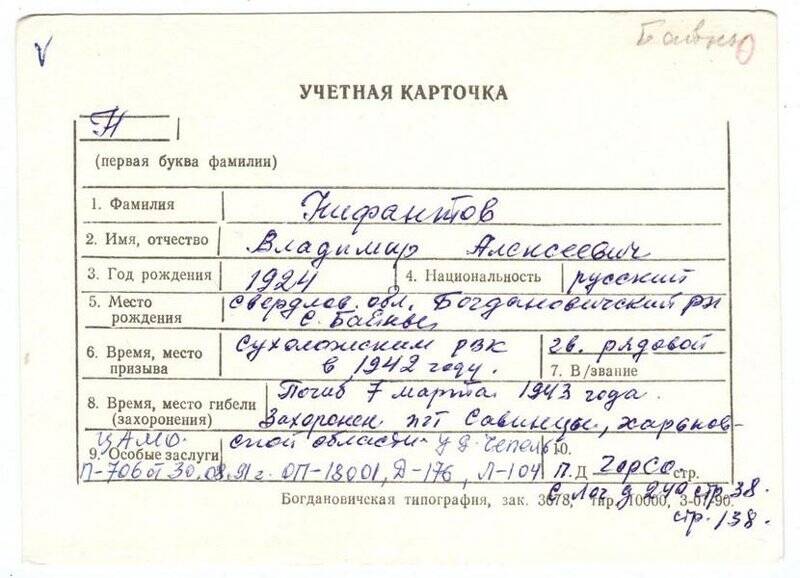 V
Байны
0
УЧЕТНАЯ КАРТОЧКА
Н
(первая буква фамилии)
1. Фамилия Нифантов
2. Имя, отчество Владимир Алексеевич
3. Год рождения 1924 4. Национальность русский
5. Место рождения Свердлов. обл. Богдановичский рн
с. Байны
6. Время, место призыва Сухоложским рвк
в 1942 году.
гв. рядовой
7. В/звание
8. Время, место гибели (захоронения) Погиб 7 марта 1943 года.
Захоронен пгт Савинцы, харьков-
ской области у д. Чепель
ЦАМО
9. Особые заслуги
П-706 от 30.08.91г. ОП-18001, Д-176, Л-104
10.
П.Д стр.
д 240 стр. 38.
Богдановичская типография, зак. 3678, тир. 10000, 3-07-90.
стр. 138.